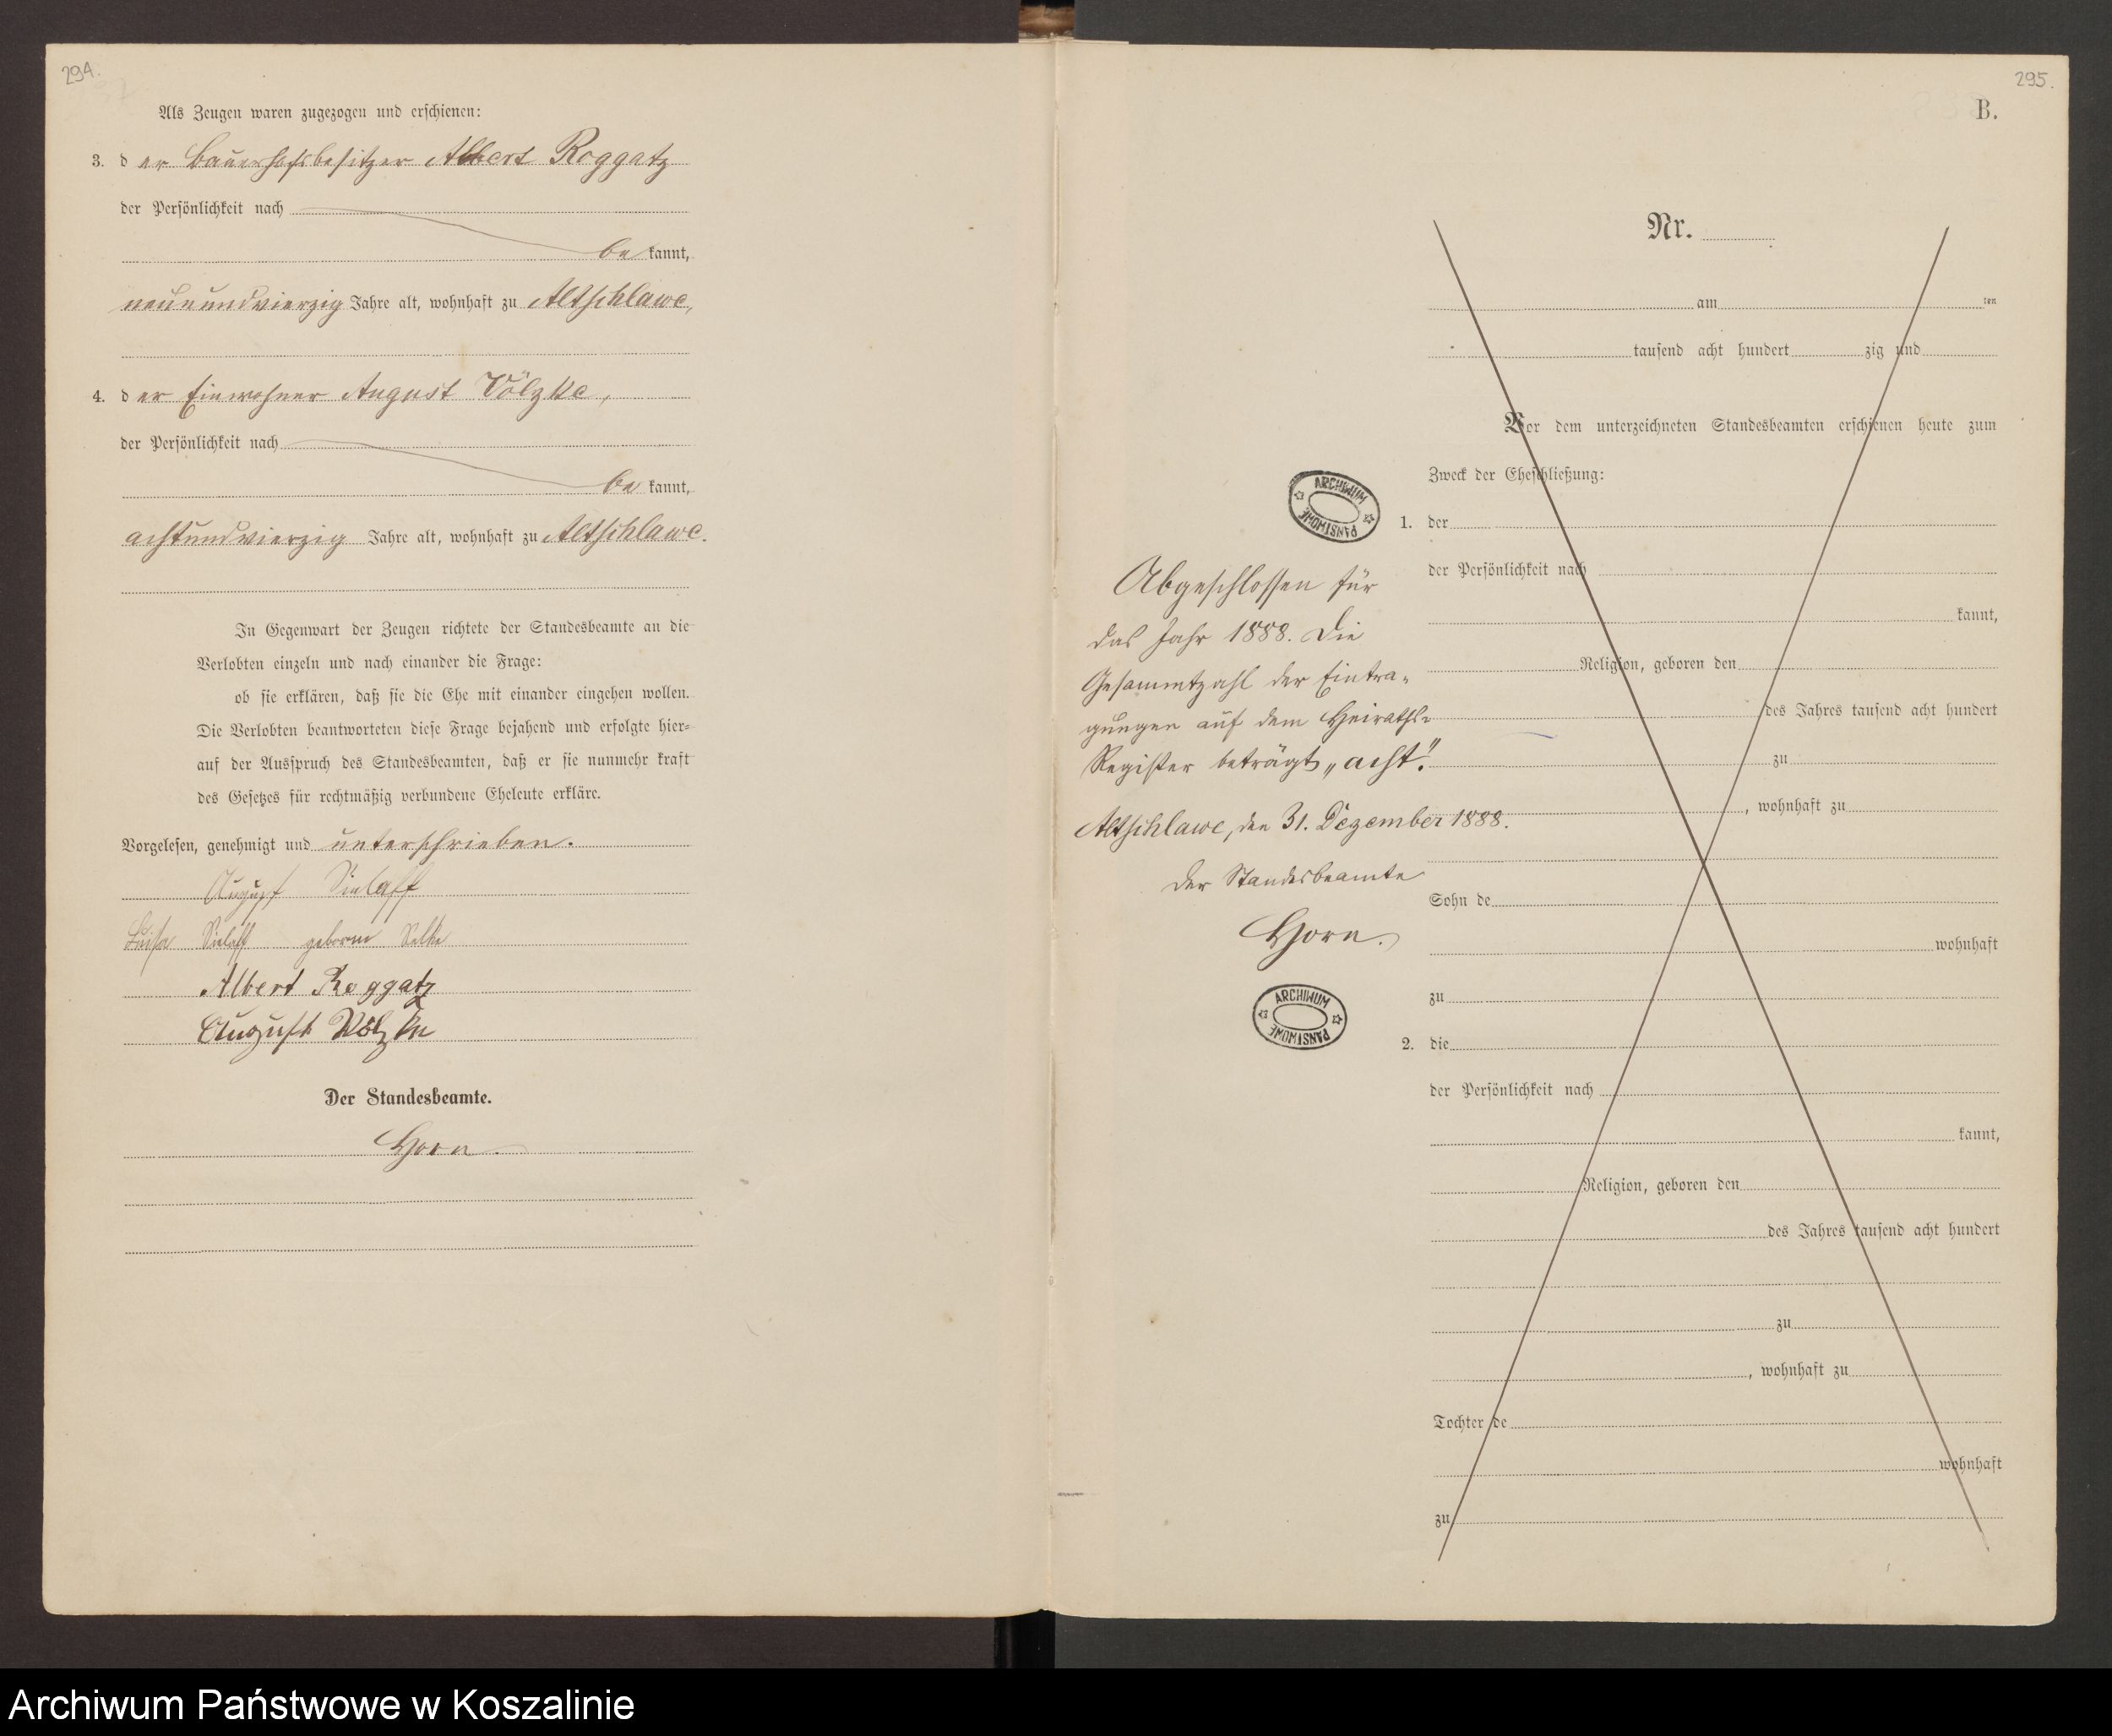 294.
Als Zeugen waren zugezogen und erschienen:
3. der Bauerhofsbesitzer Albert Roggatz
der Persönlichkeit nach
be kannt,
neunundvierzig Jahre alt, wohnhaft zu Altschlawe,
4. der Einwohner August Völzke,
der Persönlichkeit nach
be kannt,
achtundvierzig Jahre alt, wohnhaft zu Altschlawe.
In Gegenwart der Zeugen richtete der Standesbeamte an die
Verlobten einzeln und nach einander die Frage:
ob sie erklären, daß sie die Ehe mit einander eingehen wollen.
Die Verlobten beantworteten diese Frage bejahend und erfolgte hier-
auf der Ausspruch des Standesbeamten, daß er sie nunmehr kraft
des Gesetzes für rechtmäßig verbundene Eheleute erkläre.
Vorgelesen, genehmigt und unterschrieben.
August Sielaff
Luise Sielaff geborne Selke
Albert Roggatz
August Völzke
Der Standesbeamte.
Horn.
295.
B.
Nr.
am ten
tausend acht hundert zig und
Vor dem unterzeichneten Standesbeamten erschienen heute zum
Zweck der Eheschließung:
1. der
der Persönlichkeit nach
kannt,
Religion, geboren den
des Jahres tausend acht hundert
zu
, wohnhaft zu
Sohn de
wohnhaft
zu
2. die
der Persönlichkeit nach
kannt,
Religion, geboren den
des Jahres tausend acht hundert
zu
, wohnhaft zu
Tochter de
wohnhaft
zu
ARCHIWUM PAŃSTWOWE
Abgeschlossen für
das Jahr 1888. Die
Gesammtzahl der Eintra-
gungen auf dem Heiraths-
Register beträgt „acht".
Altschlawe, den 31. Dezember 1888.
Der Standesbeamte
Horn.
ARCHIWUM PAŃSTWOWE
Archiwum Państwowe w Koszalinie